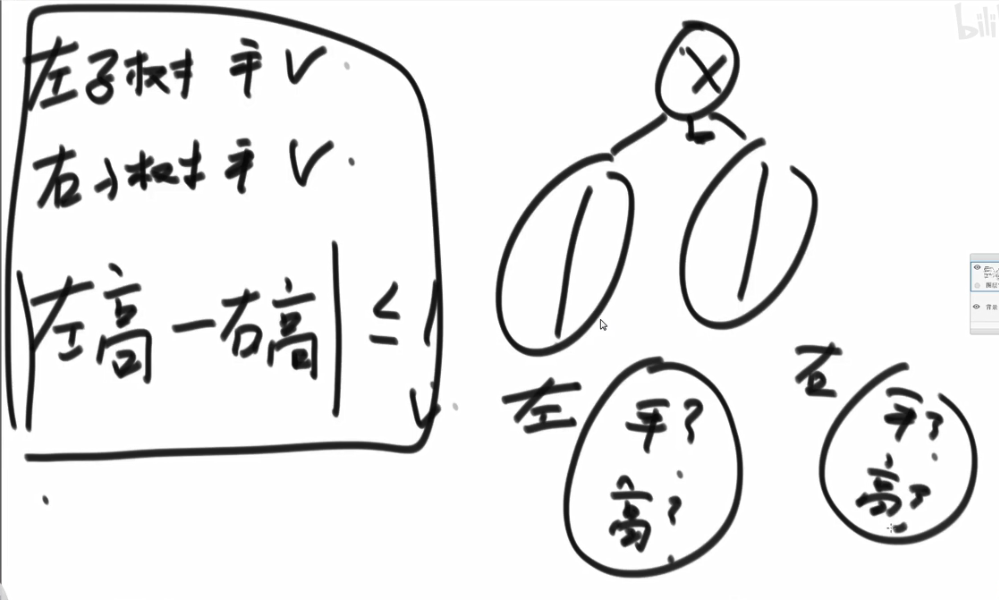 左子树 平 √
右子树 平 √
|左高 — 右高| ≤ 1 √
X
左
平?
高?
右
平?
高?
bili